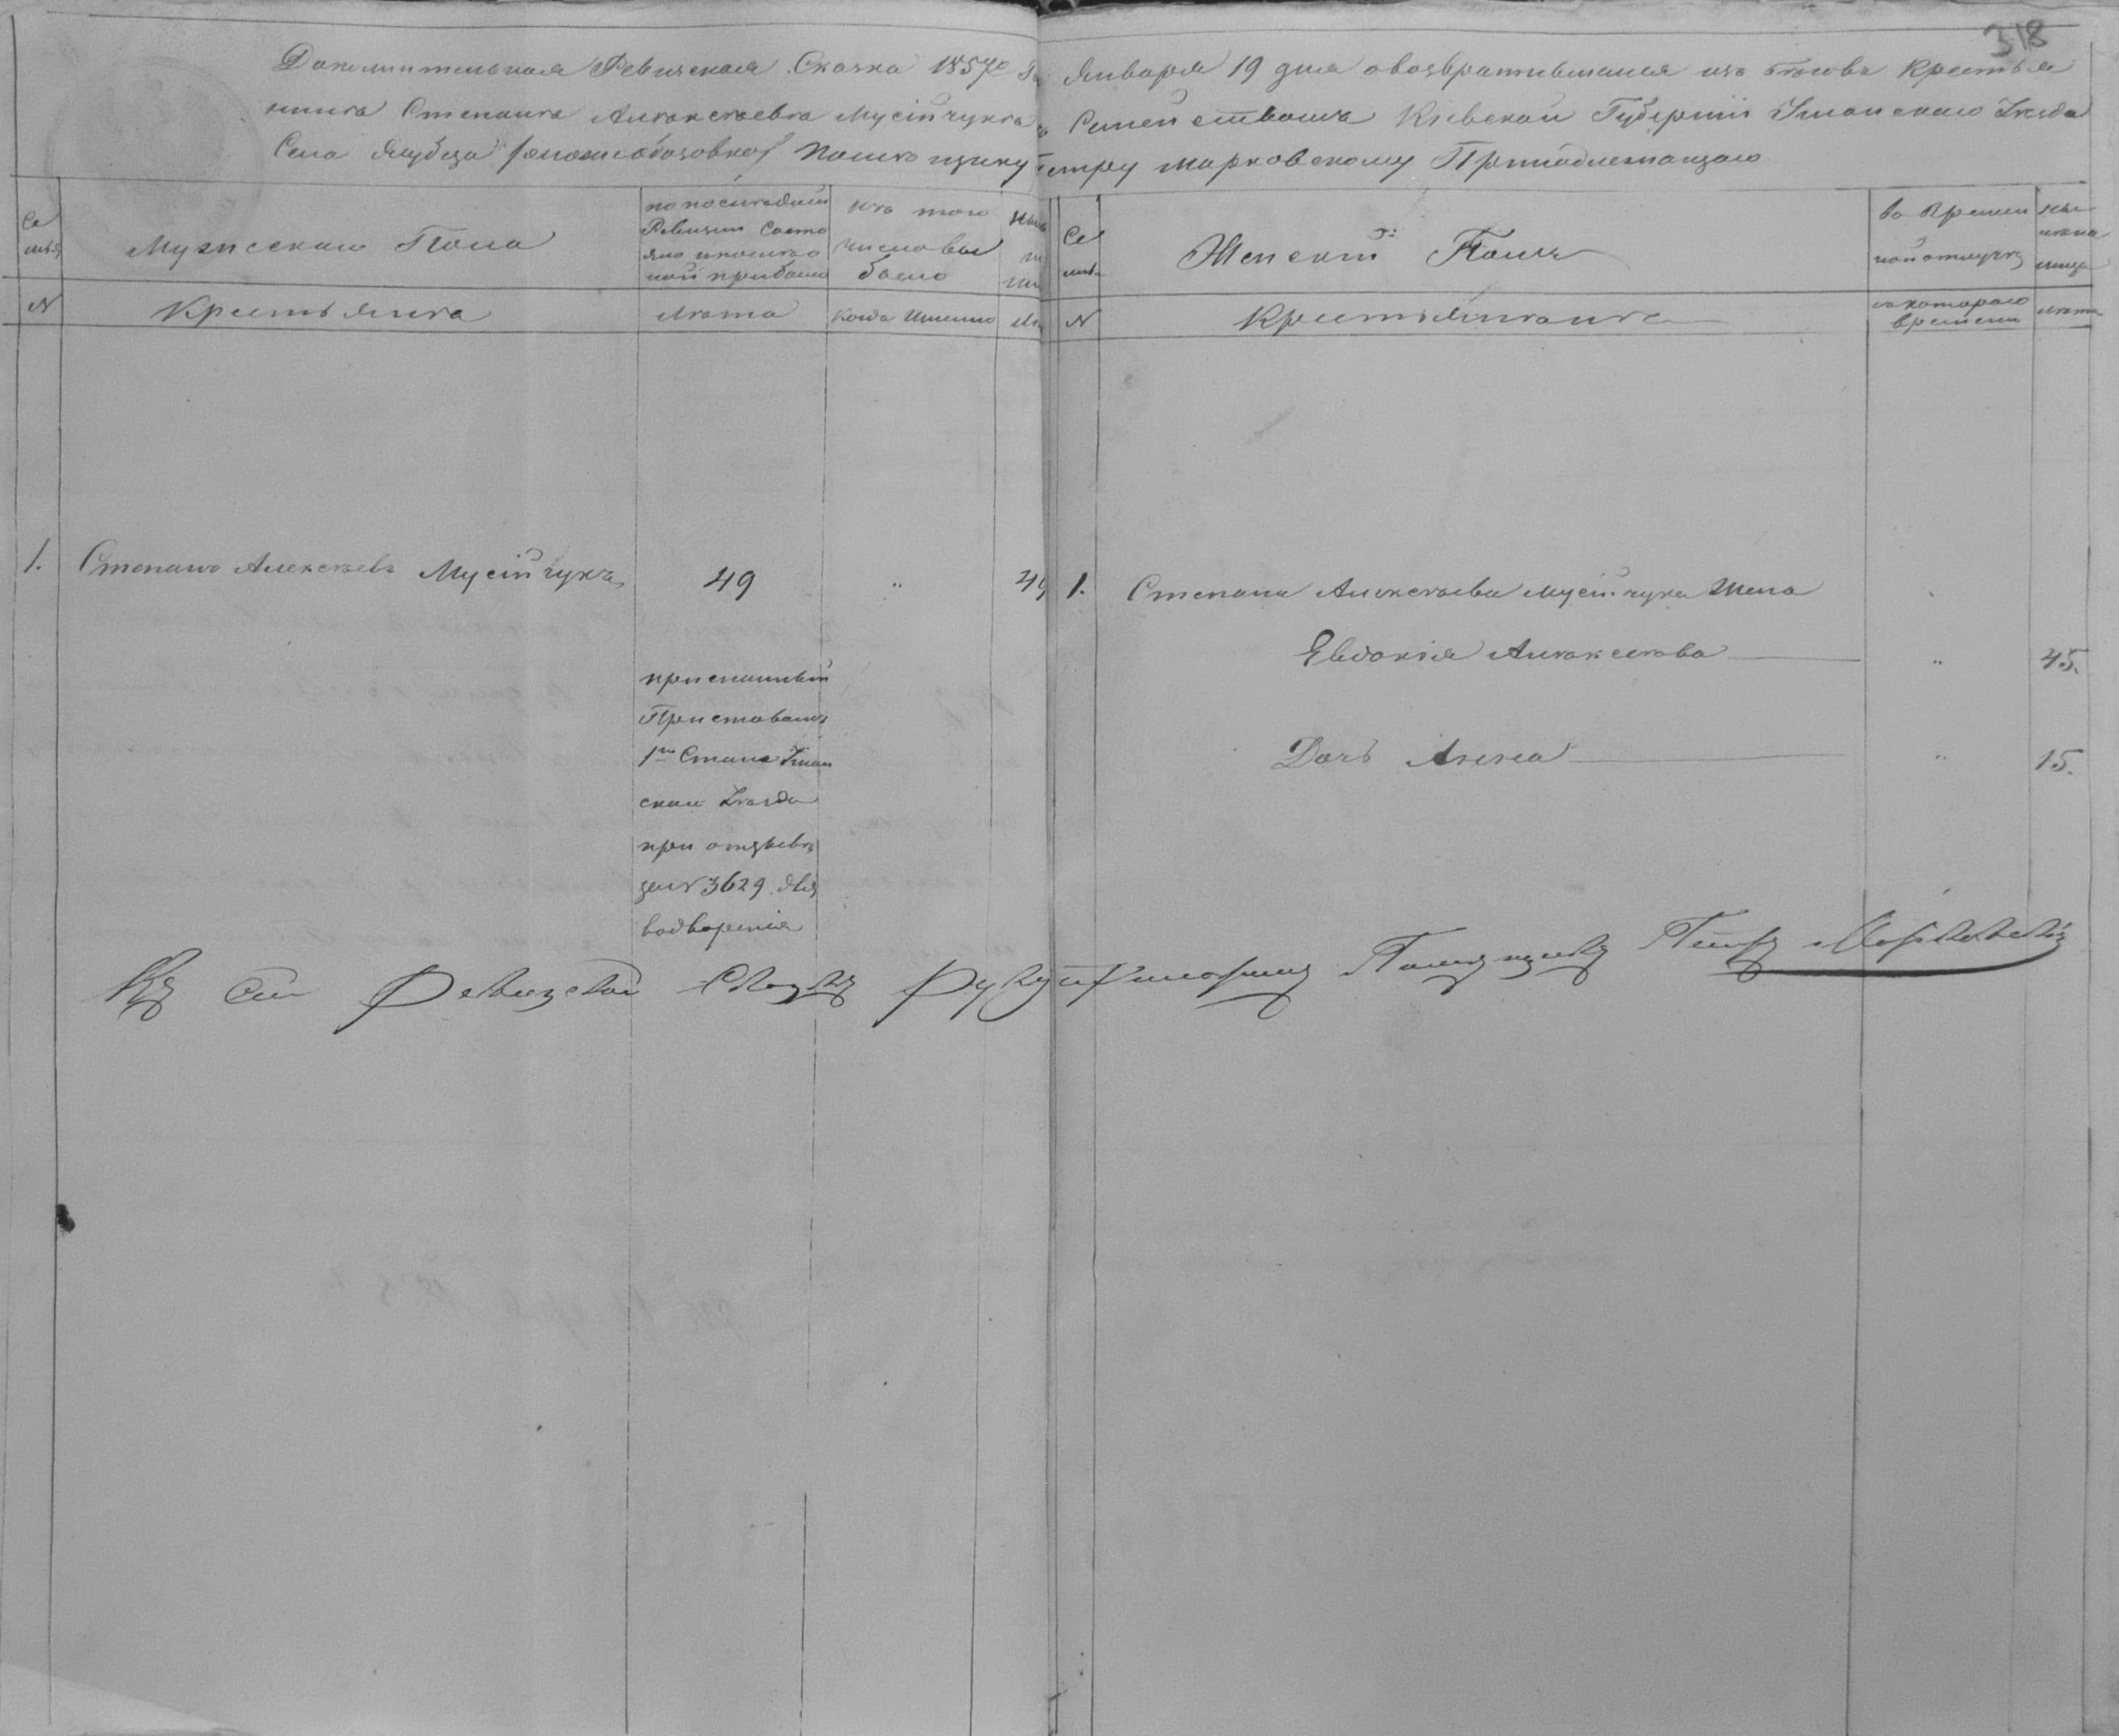 318
Дополнительная Ревизская Сказка 1857го Января 19 дня о возвратившемся изъ бѣговъ Крестья
нинѣ Степанѣ Алексѣевѣ Мусійчукѣ съ Семействомъ Кіевской Губерніи Уманскаго Уѣзда
Села Якубца Помѣщику Петру Марковскому Принадлежащаго
Се
мья
Мужескаго Пола
по послѣдней
Ревизіи Состо
яло и послѣ о
ной прибыло
изъ того
числа вы
было
Се
мья
Женскій Полъ
во времен
ной отлучкѣ
ны
нѣ на
лице
N
Крестьянѣ
Лѣта
Когда Именно
N
Крестьянинѣ
съ котораго
времени
лѣта
1. Степанъ Алексѣевъ Мусійчукъ 49 " 49
присланный
Приставомъ
1го Стана Уман
скаго Уѣзда
при отзывѣ
за N 3629 для
водворенія
1. Степана Алексѣева Мусійчука Жена
Евдокія Алексѣева " 45.
Дочь Анна " 15.
Къ сей Ревизской Сказкѣ Руку приложилъ Помѣщикъ Петръ Марковскій